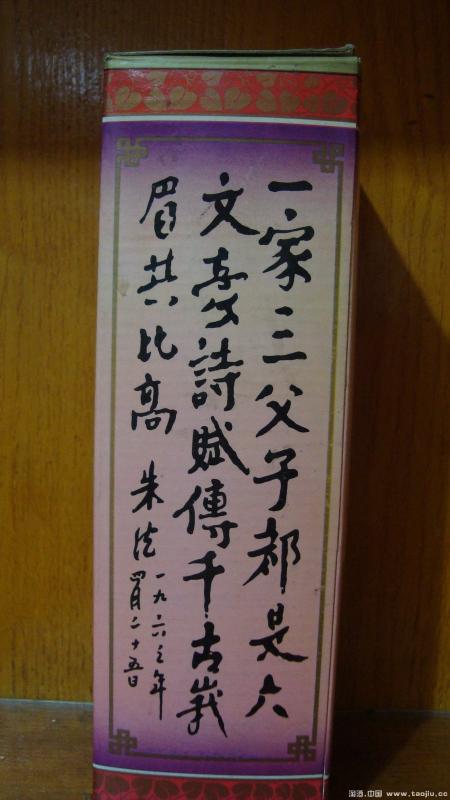 一家三父子都是大
文豪詩賦傳千古峩
眉共比高 朱德
一九六三年
四月二十五日
淘酒.中国 www.taojiu.cc